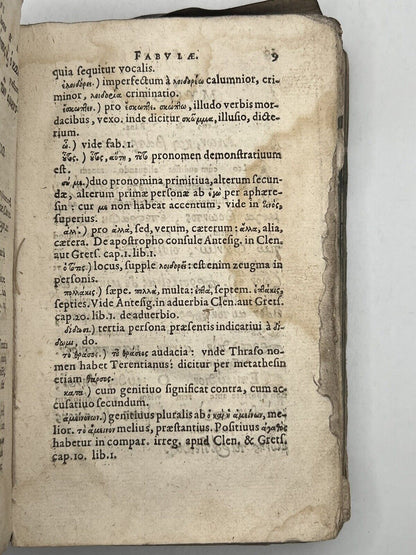 FABVLÆ. 9
quia sequitur vocalis.
ἐλοιδόρει.) imperfectum à λοιδορέω calumnior, cri-
minor, λοιδορία criminatio.
ἐσκώπτει.) pro ἐσκώπτει. σκώπτω, illudo verbis mor-
dacibus, vexo. inde dicitur σκῶμμα, illusio, dicte-
rium.
ὦ.) vide fab. 1.
οὗτος.) οὗτος, αὕτη, τοῦτο pronomen demonstratiuum
est.
σύ με.) duo pronomina primitiua, alterum secun-
dæ, alterum primæ personæ ab ἐγώ per aphære-
sin: cur με non habeat accentum, vide in
superius.
ἀλλ'.) pro ἀλλά, sed, verum, cæterum: ἄλλα, alia,
cætera. De apostropho consule Antesig. in Clen.
aut Grets. cap. 1. lib. 1.
ὁ τόπος.) locus, supple λοιδορεῖ: est enim zeugma in
personis.
πολλάκις.) sæpe. πολλά, multa: ἑπτά, septem. ἑπτάκις,
septies. Vide Antesig. in aduerbia Clen. aut Grets.
cap. 20. lib. 1. de aduerbio.
δίδωσι.) tertia persona præsentis indicatiui à δί-
δωμι, do.
τὸ θράσος.) τὸ θράσος audacia: vnde Thraso no-
men habet Terentianus: dicitur per metathesin
etiam θάρσος.
κατά.) cum genitiuo significat contra, cum ac-
cusatiuo secundum.
ἀμεινόνων.) genitiuus pluralis ab ὁ καὶ ἡ ἀμείνων, me-
lior. τὸ ἄμεινον melius, præstantius. Positiuus ἀγαθὸς
habetur in compar. irreg. apud Clen. & Grets.
cap. 10. lib. 1.